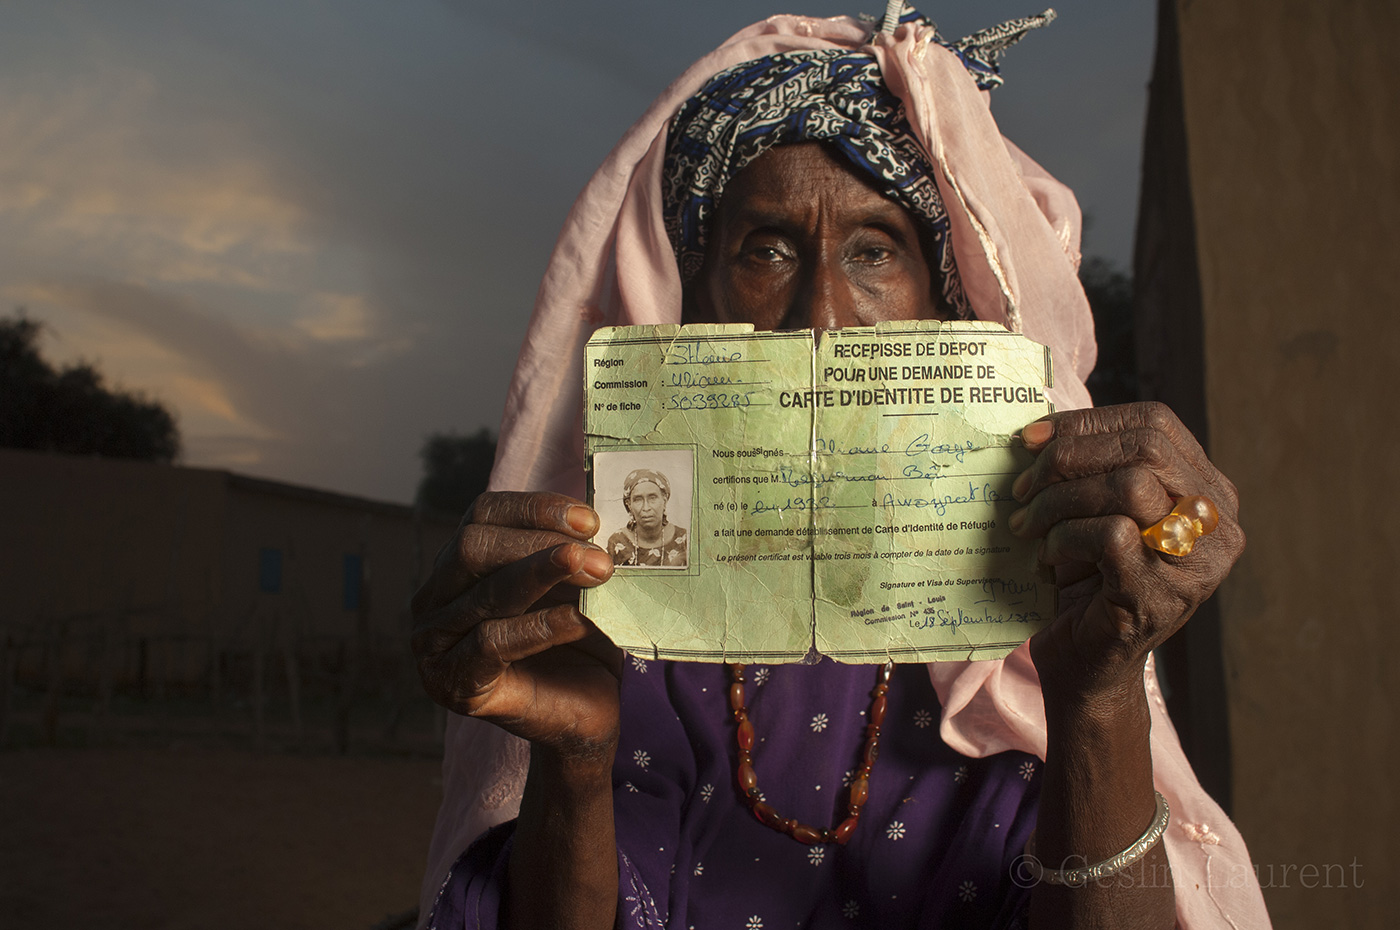 Région : St Louis
Commission :
N° de fiche : 5039285
RECEPISSE DE DEPOT
POUR UNE DEMANDE DE
CARTE D'IDENTITE DE REFUGIE
Nous soussignés
certifions que M.
né (e) le en 1932 à
a fait une demande détablissement de Carte d'Identité de Réfugié
Le présent certificat est valable trois mois à compter de la date de la signature
Signature et Visa du Superviseur
Région de Saint - Louis
Commission N° 435
Le 18 Septembre 1989
© Geslin Laurent